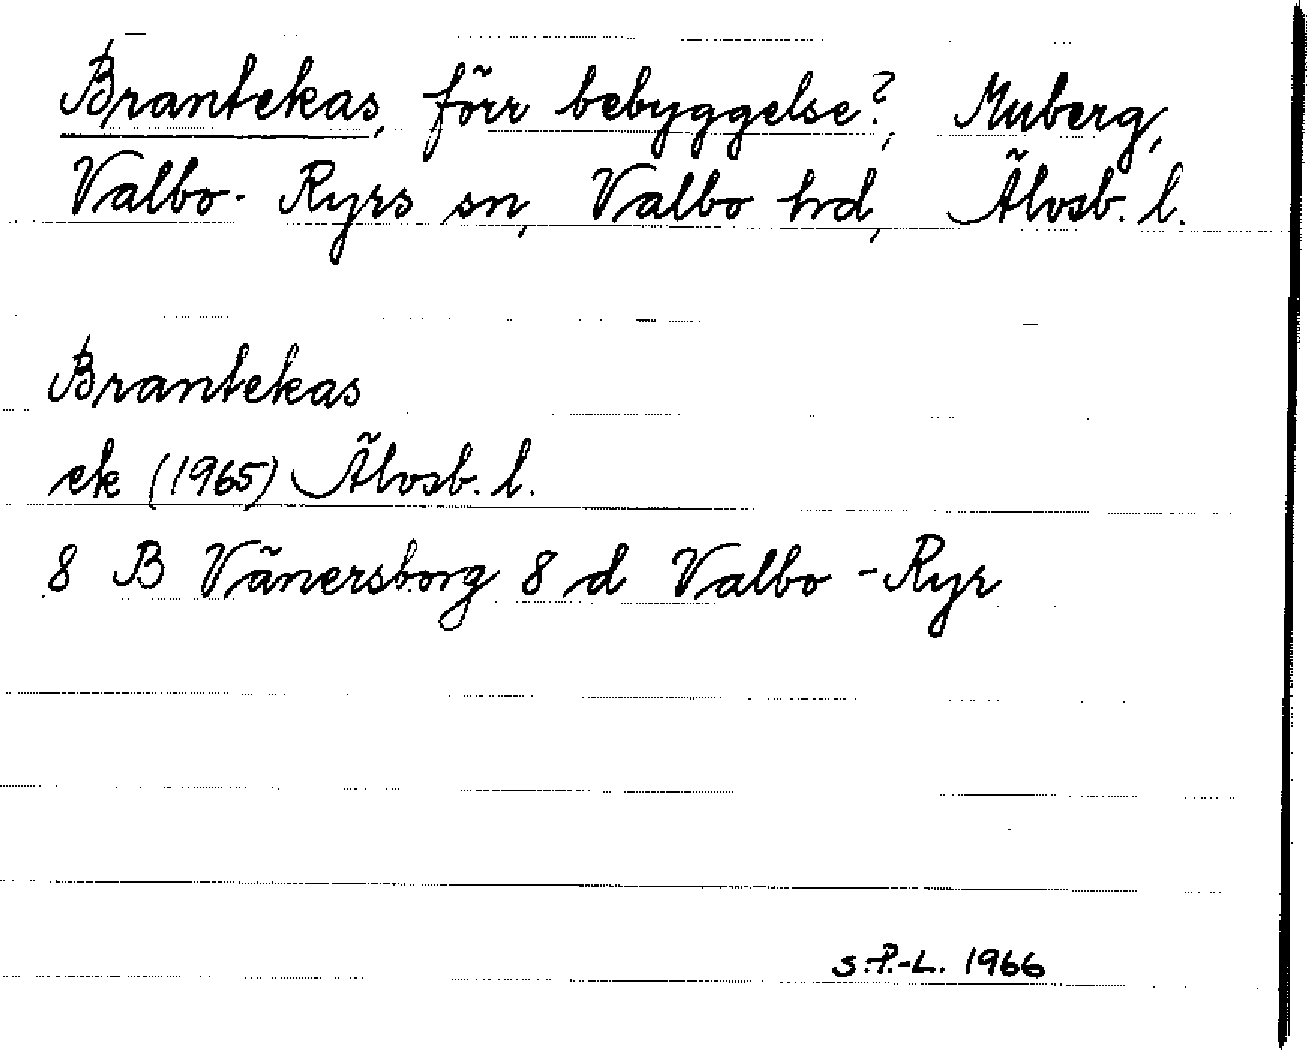 Brantekas, förr bebyggelse?, Muberg,
Valbo-Ryrs sn, Valbo hd, Älvsb. l.
Brantekas
ek (1965) Älvsb. l.
8 B Vänersborg 8 d Valbo-Ryr
S.P.-L. 1966